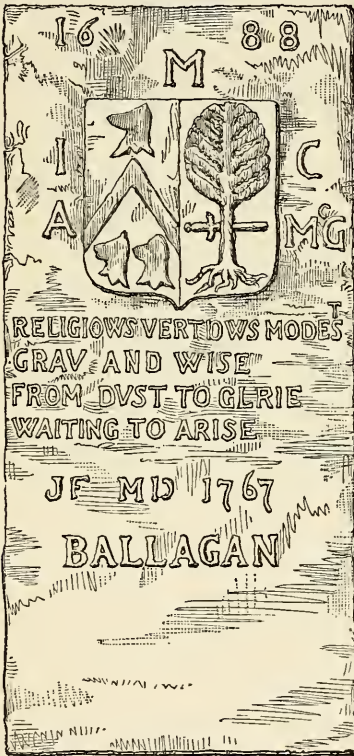 16 88
M
I C
A McG
RELIGIOWS VERTOWS MODEST
GRAV AND WISE
FROM DVST TO GLRIE
WAITING TO ARISE
JF MD 1767
BALLAGAN